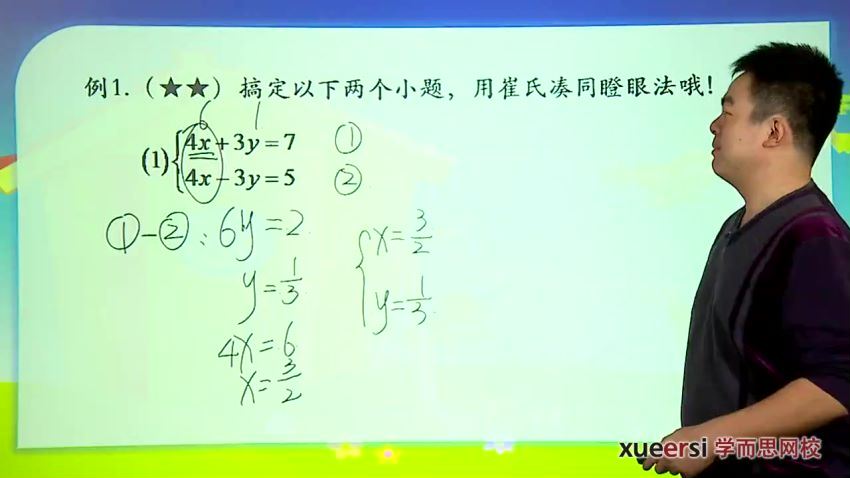 例1.（★★）搞定以下两个小题，用崔氏凑同瞪眼法哦！
6 1
(1) { 4x+3y=7 ①
4x-3y=5 ②
①-②：6y=2
y=1/3
4x=6
x=3/2
{ x=3/2
y=1/3
xueersi 学而思网校